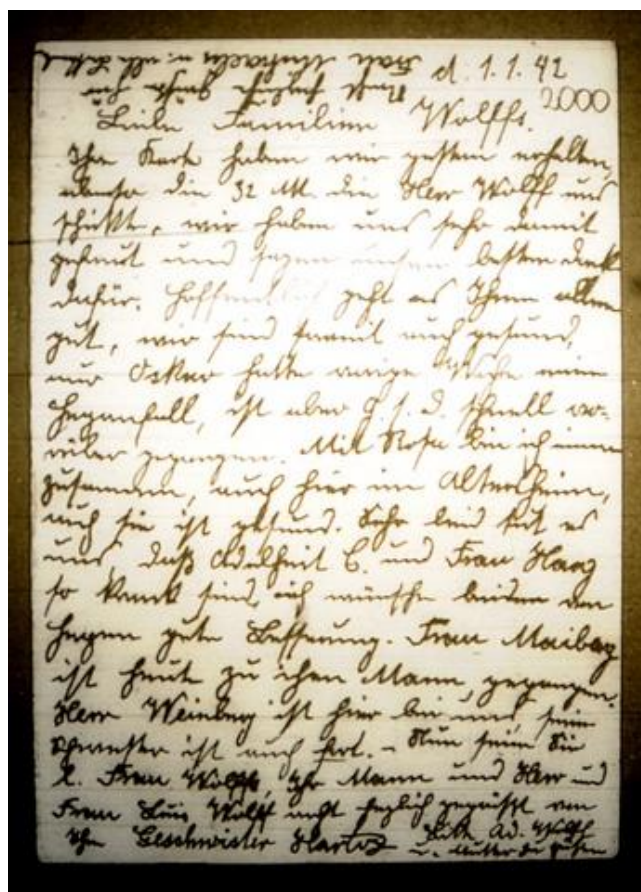 d. 1.1.42
2000
Liebe Familien Wolffs.
Ihre Karte haben wir gestern erhalten,
ebenso die 32 M. die Herr Wolff uns
schickte, wir haben uns sehr damit
gefreut und sagen unsern besten Dank
dafür. Hoffentlich geht es Ihnen allen
gut, wir sind soweit auch gesund,
nur Oskar hatte vorige Woche einen
Herzanfall, ist aber G. s. d. schnell vor-
über gegangen. Mit Rosa bin ich immer
zusammen, auch hier im Altersheim,
auch sie ist gesund. Sehr leid tut es
uns, daß Adelheit C. und Frau Haas
so krank sind, ich wünsche beiden von
Herzen gute Besserung. Frau Maibach
ist heute zu ihren Mann, gegangen.
Herr Weinberg ist hier bei uns, seine
Schwester ist auch fort. – Nun seien Sie
l. Frau Wolff, Ihr Mann und Herr und
Frau Luis Wolff recht herzlich gegrüßt von
Ihre Geschwister Hartog Bitte Ad. Wolff
u. Mutter zu grüßen